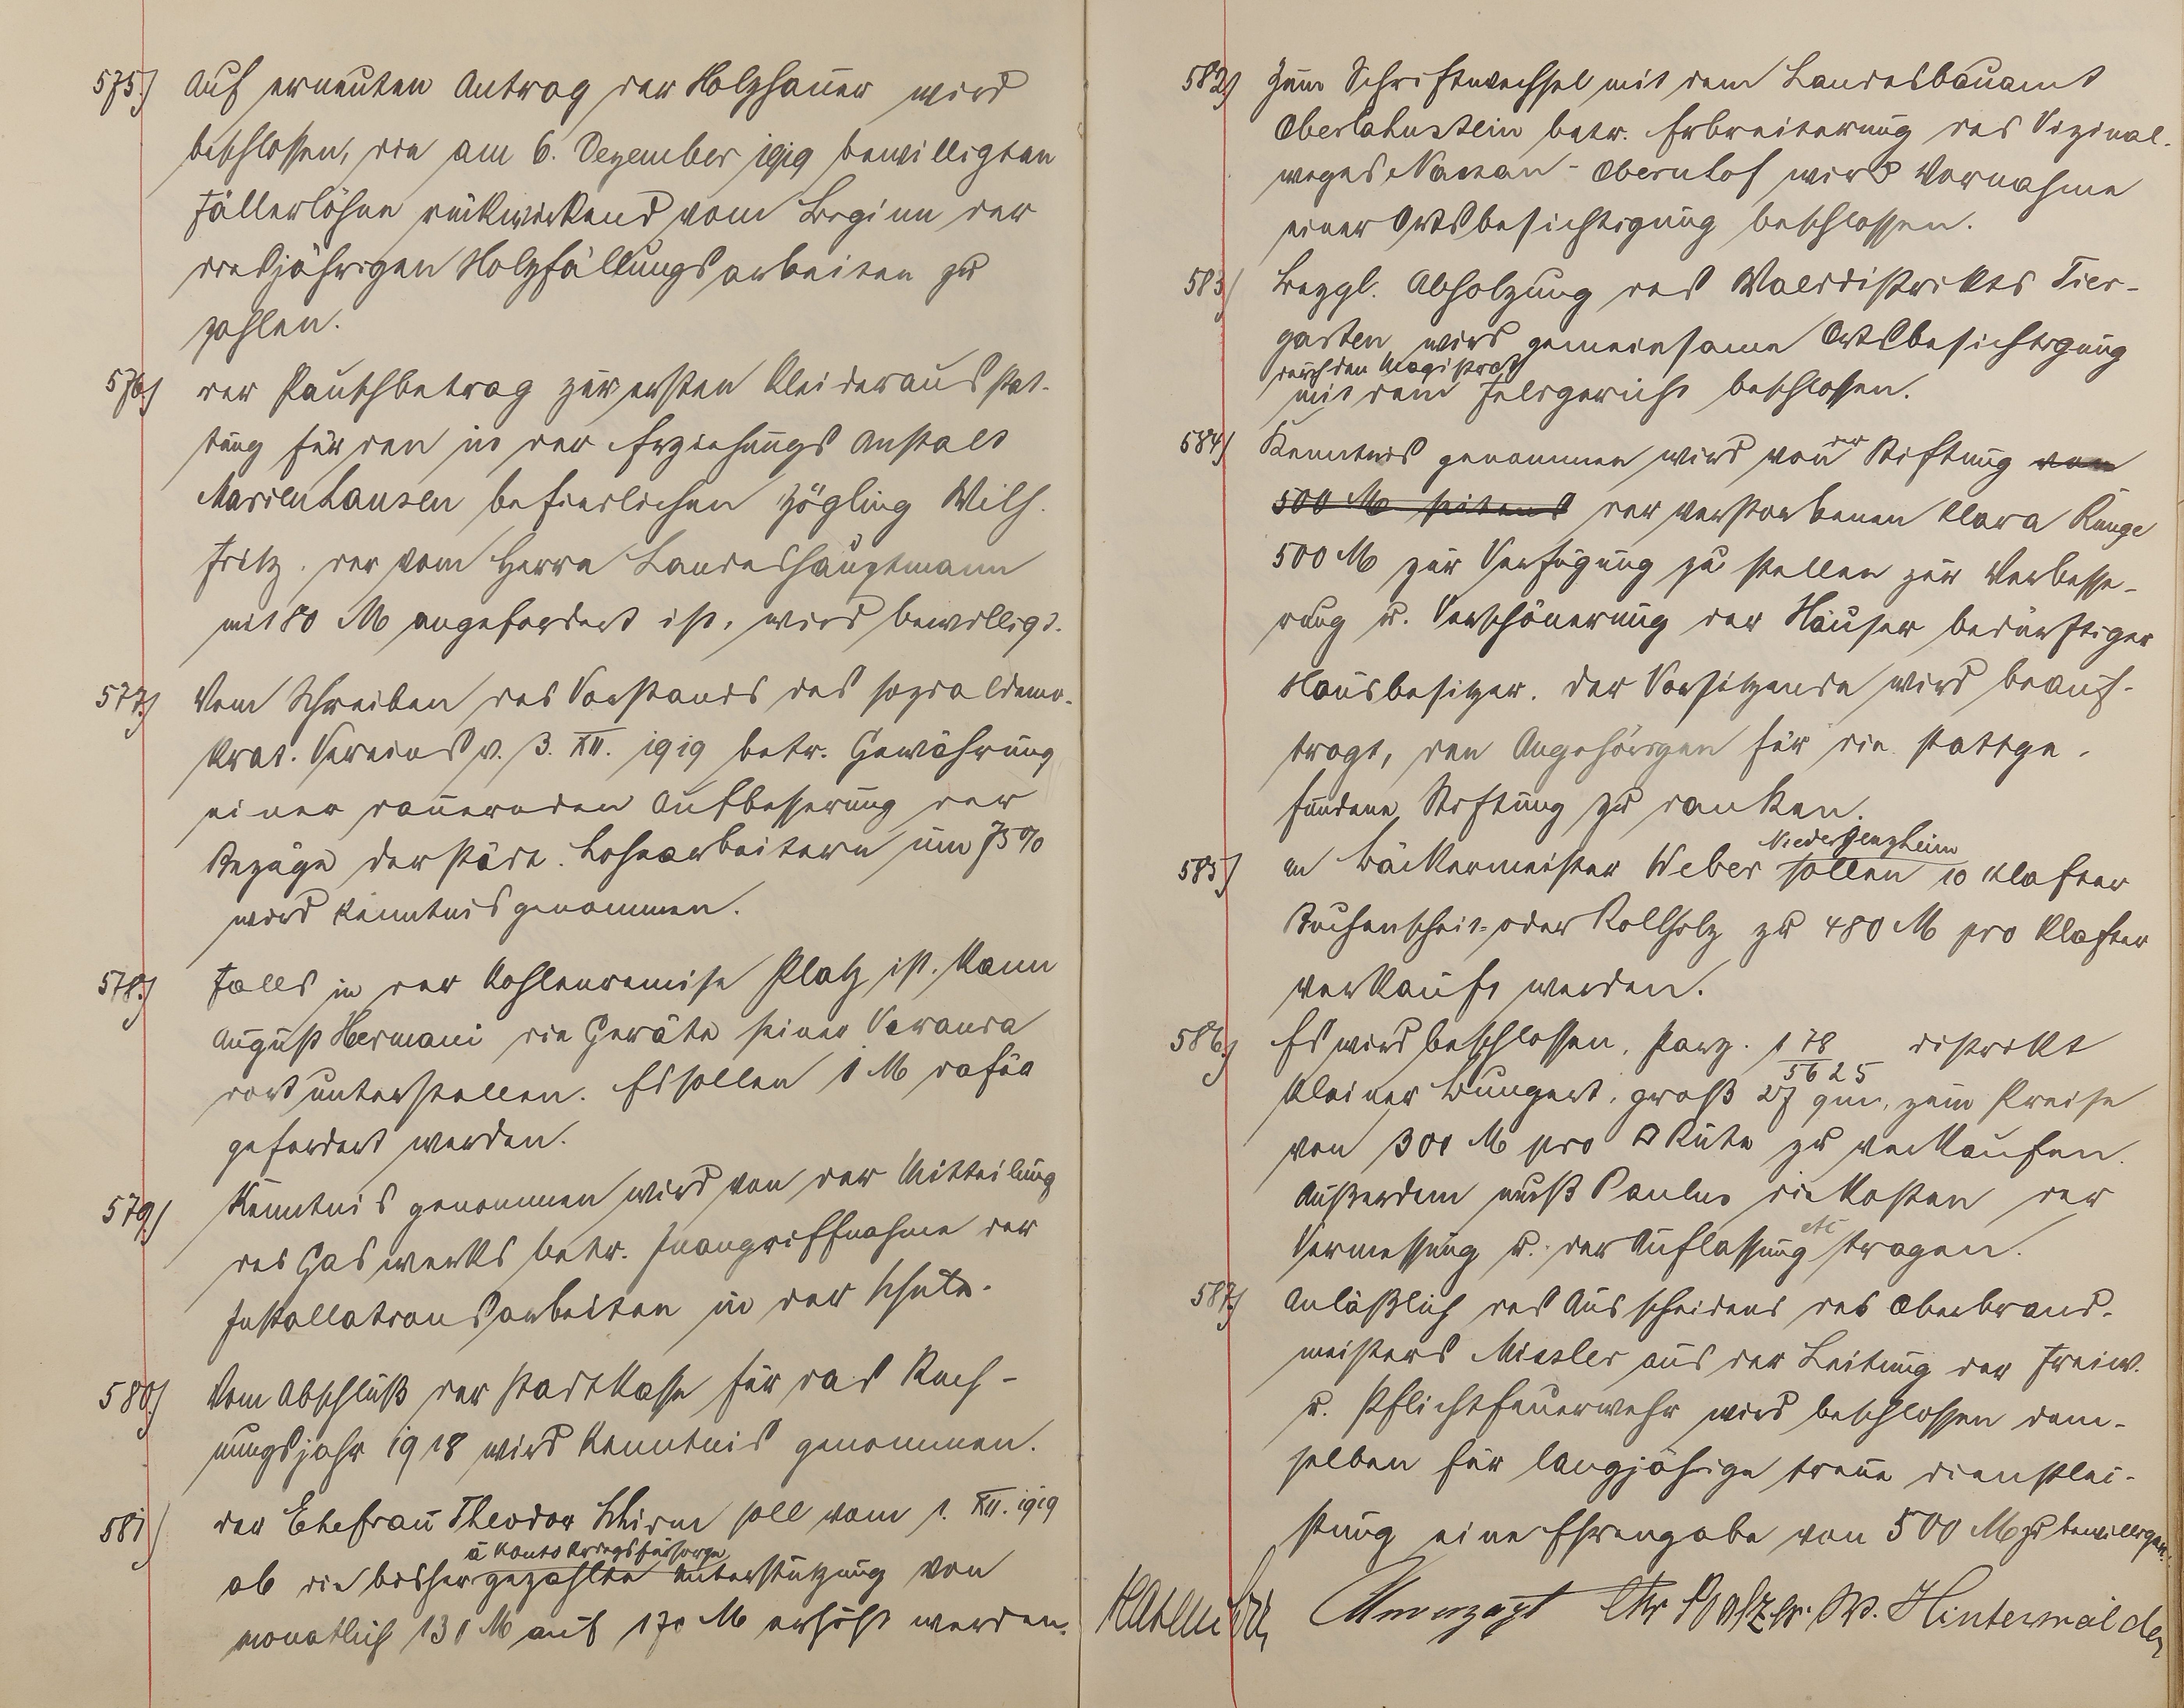 575.) Auf erneuten Antrag der Holzhauer wird
beschlossen, die am 6. Dezember 1919 bewilligten
Fällerlöhne rückwirkend vom Beginn der
diesjährigen Holzfällungsarbeiten zu
zahlen.
576.) Der Pauschbetrag zur ersten Kleiderausstat-
tung für den in der Erziehungs Anstalt
Marienhausen befindlichen Zögling Wilh.
Fritz, der vom Herrn Landeshauptmann
mit 80 M angefordert ist, wird bewilligt.
577.) Vom Schreiben des Vorstands des sozialdemo-
krat. Vereins v. 3. XII. 1919 betr. Gewährung
einer dauernden Aufbesserung der
Bezüge der städt. Lohnarbeitern um 75%
wird Kenntnis genommen.
578.) Falls in der Kohlenremise Platz ist, kann
August Hermani die Geräte seiner Veranda
dort unterstellen. Es sollen 1 M dafür
gefordert werden.
579.) Kenntnis genommen wird von der Mitteilung
des Gaswerks betr. Inangriffnahme der
Installationsarbeiten in der Schule.
580.) Vom Abschluß der Stadtkasse für das Rech-
nungsjahr 1918 wird Kenntnis genommen.
581.) Der Ehefrau Theodor Schirm soll vom 1. XII. 1919
à Konto Kriegsfürsorge
ab die bisher gezahlte Unterstützung von
monatlich 130 M auf 170 M erhöht werden.
582.) Zum Schriftwechsel mit dem Landesbauamt
Oberlahnstein betr. Erbreiterung des Vizinal-
weges Nassau - Obernhof wird Vornahme
einer Ortsbesichtigung beschlossen.
583.) Bezgl. Abholzung des Walddistriktes Tier-
garten wird gemeinsame Ortsbesichtigung
durch den Magistrat
mit dem Feldgericht beschlossen.
584.) Kenntnis genommen wird von der Stiftung von
500 M seitens der verstorbenen Klara Runge
500 M zur Verfügung zu stellen zur Verbesse-
rung u. Verschönerung der Häuser bedürftiger
Hausbesitzer. Der Vorsitzende wird beauf-
tragt, den Angehörigen für die stattge-
fundene Stiftung zu danken.
585.) Bäckermeister Weber sollen 10 Klafter
Buchenscheit- oder Rollholz zu 480 M pro Klafter
verkauft werden.
586.) Es wird beschlossen, Parz. 178/5625 Distrikt
Kleiner Bungert, groß 27 qm, zum Preise
von 300 M pro □ Rute zu verkaufen.
Außerdem muß Paulus die Kosten der
Vermessung u. der Auflassung etc tragen.
587.) Anläßlich des Ausscheidens des Oberbrand-
meisters Missler aus der Leitung der Freiw.
u. Pflichtfeuerwehr wird beschlossen dem-
selben für langjährige treue Dienstlei-
stung eine Ehrengabe von 500 M zu bewilligen.
Unverzagt W. Hinterwälder